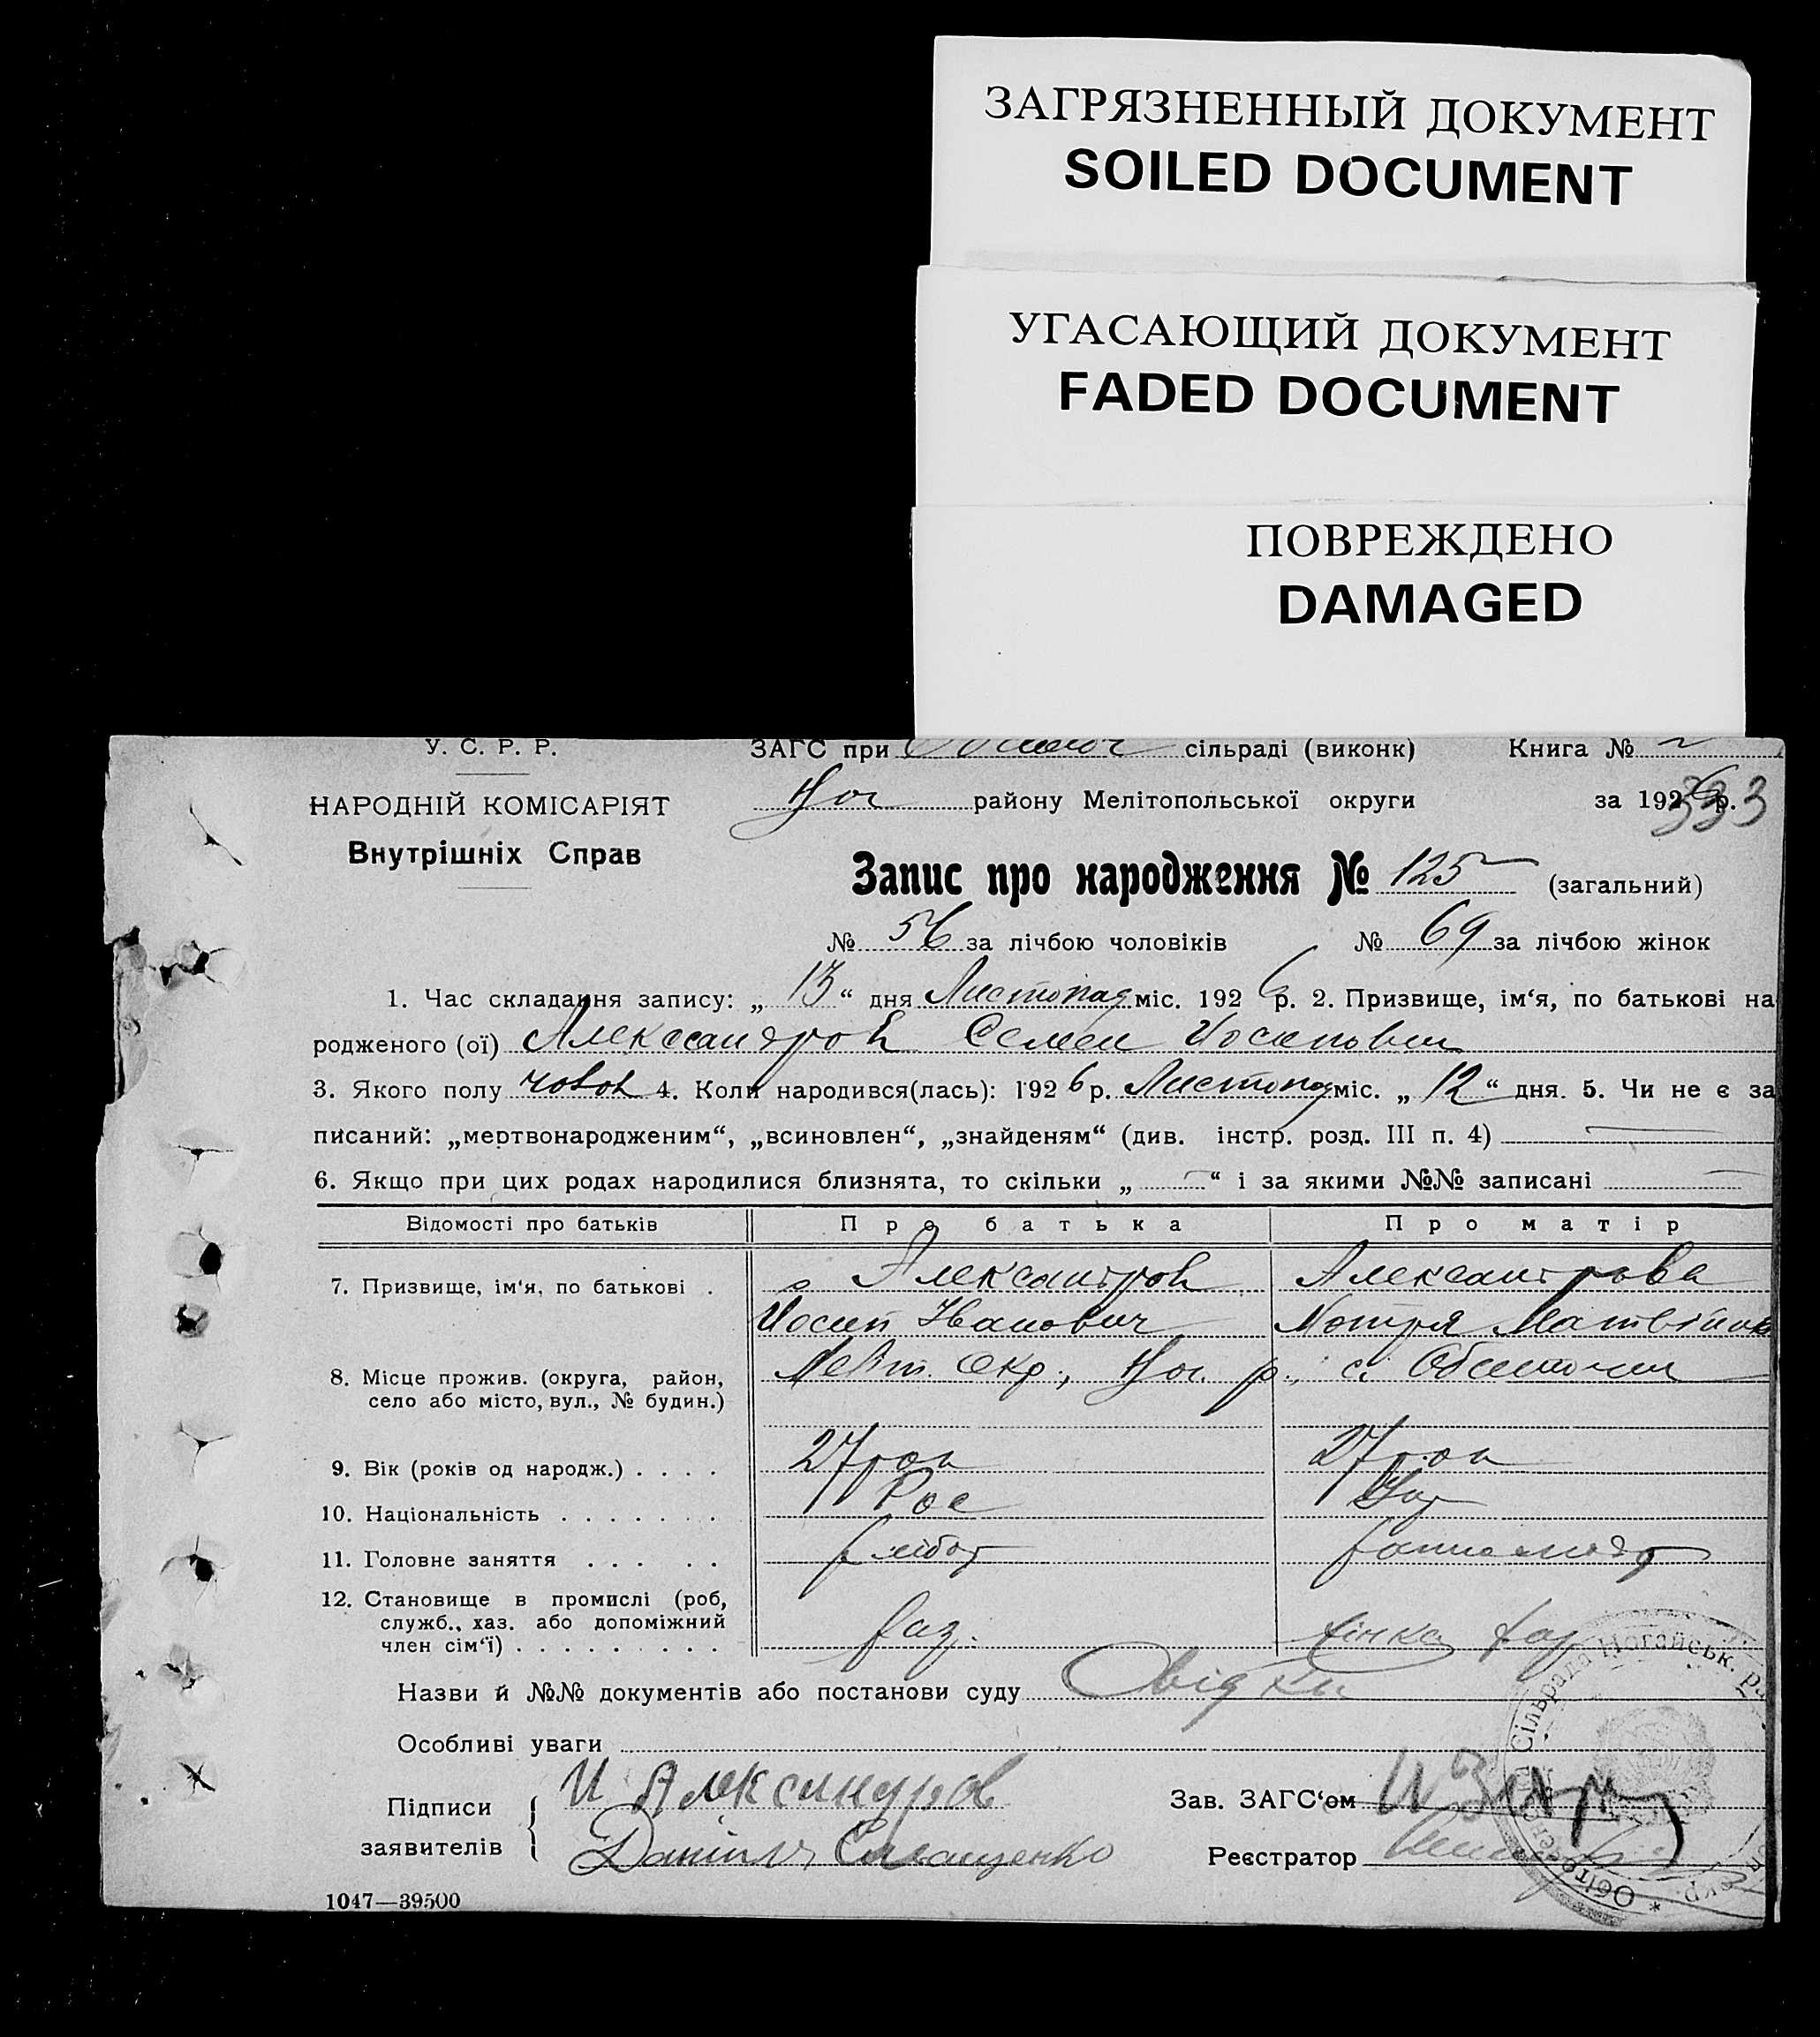 ЗАГРЯЗНЕННЫЙ ДОКУМЕНТ
SOILED DOCUMENT
УГАСАЮЩИЙ ДОКУМЕНТ
FADED DOCUMENT
ПОВРЕЖДЕНО
DAMAGED
У. С. Р. Р. ЗАГС при сільраді (виконк) Книга №
НАРОДНІЙ КОМІСАРІЯТ Ног району Мелітопольської округи за 1926 р.
333
Внутрішніх Справ
Запис про народження № 125 (загальний)
№ 56 за лічбою чоловіків № 69 за лічбою жінок
1. Час складання запису: „ 13 “ дня Листопад міс. 192 6 р. 2. Призвище, ім‘я, по батькові на
родженого (ої) Александров Семен Иосипович
3. Якого полу чолов 4. Коли народився(лась): 192 6 р. Листопад міс. „ 12 “ дня. 5. Чи не є за
писаний: „мертвонародженим“, „всиновлен“, „знайденям“ (див. інстр. розд. III п. 4) —
6. Якщо при цих родах народилися близнята, то скільки „ — “ і за якими №№ записані —
Відомості про батьків Про батька Про матір
7. Призвище, ім‘я, по батькові . Александров Александрова
Иосип Иванович Мотря Матвійов
8. Місце прожив. (округа, район, Меліт. Окр., Ног. р., с. Обиточн
село або місто, вул., № будин.)
9. Вік (років од народж.) . . . . 27 рок 27 рок
10. Національність . . . . . . . Рос Укр
11. Головне заняття . . . . . хлібор
12. Становище в промислі (роб, хаз. жінка хаз
служб., хаз. або допоміжний
член сім‘ї) . . . . . . . . .
Назви й №№ документів або постанови суду Свідки
Особливі уваги
Підписи И Александров Зав. ЗАГС‘ом
заявителів Данило Реєстратор
Сільрада Ногайськ. ра
1047—39500